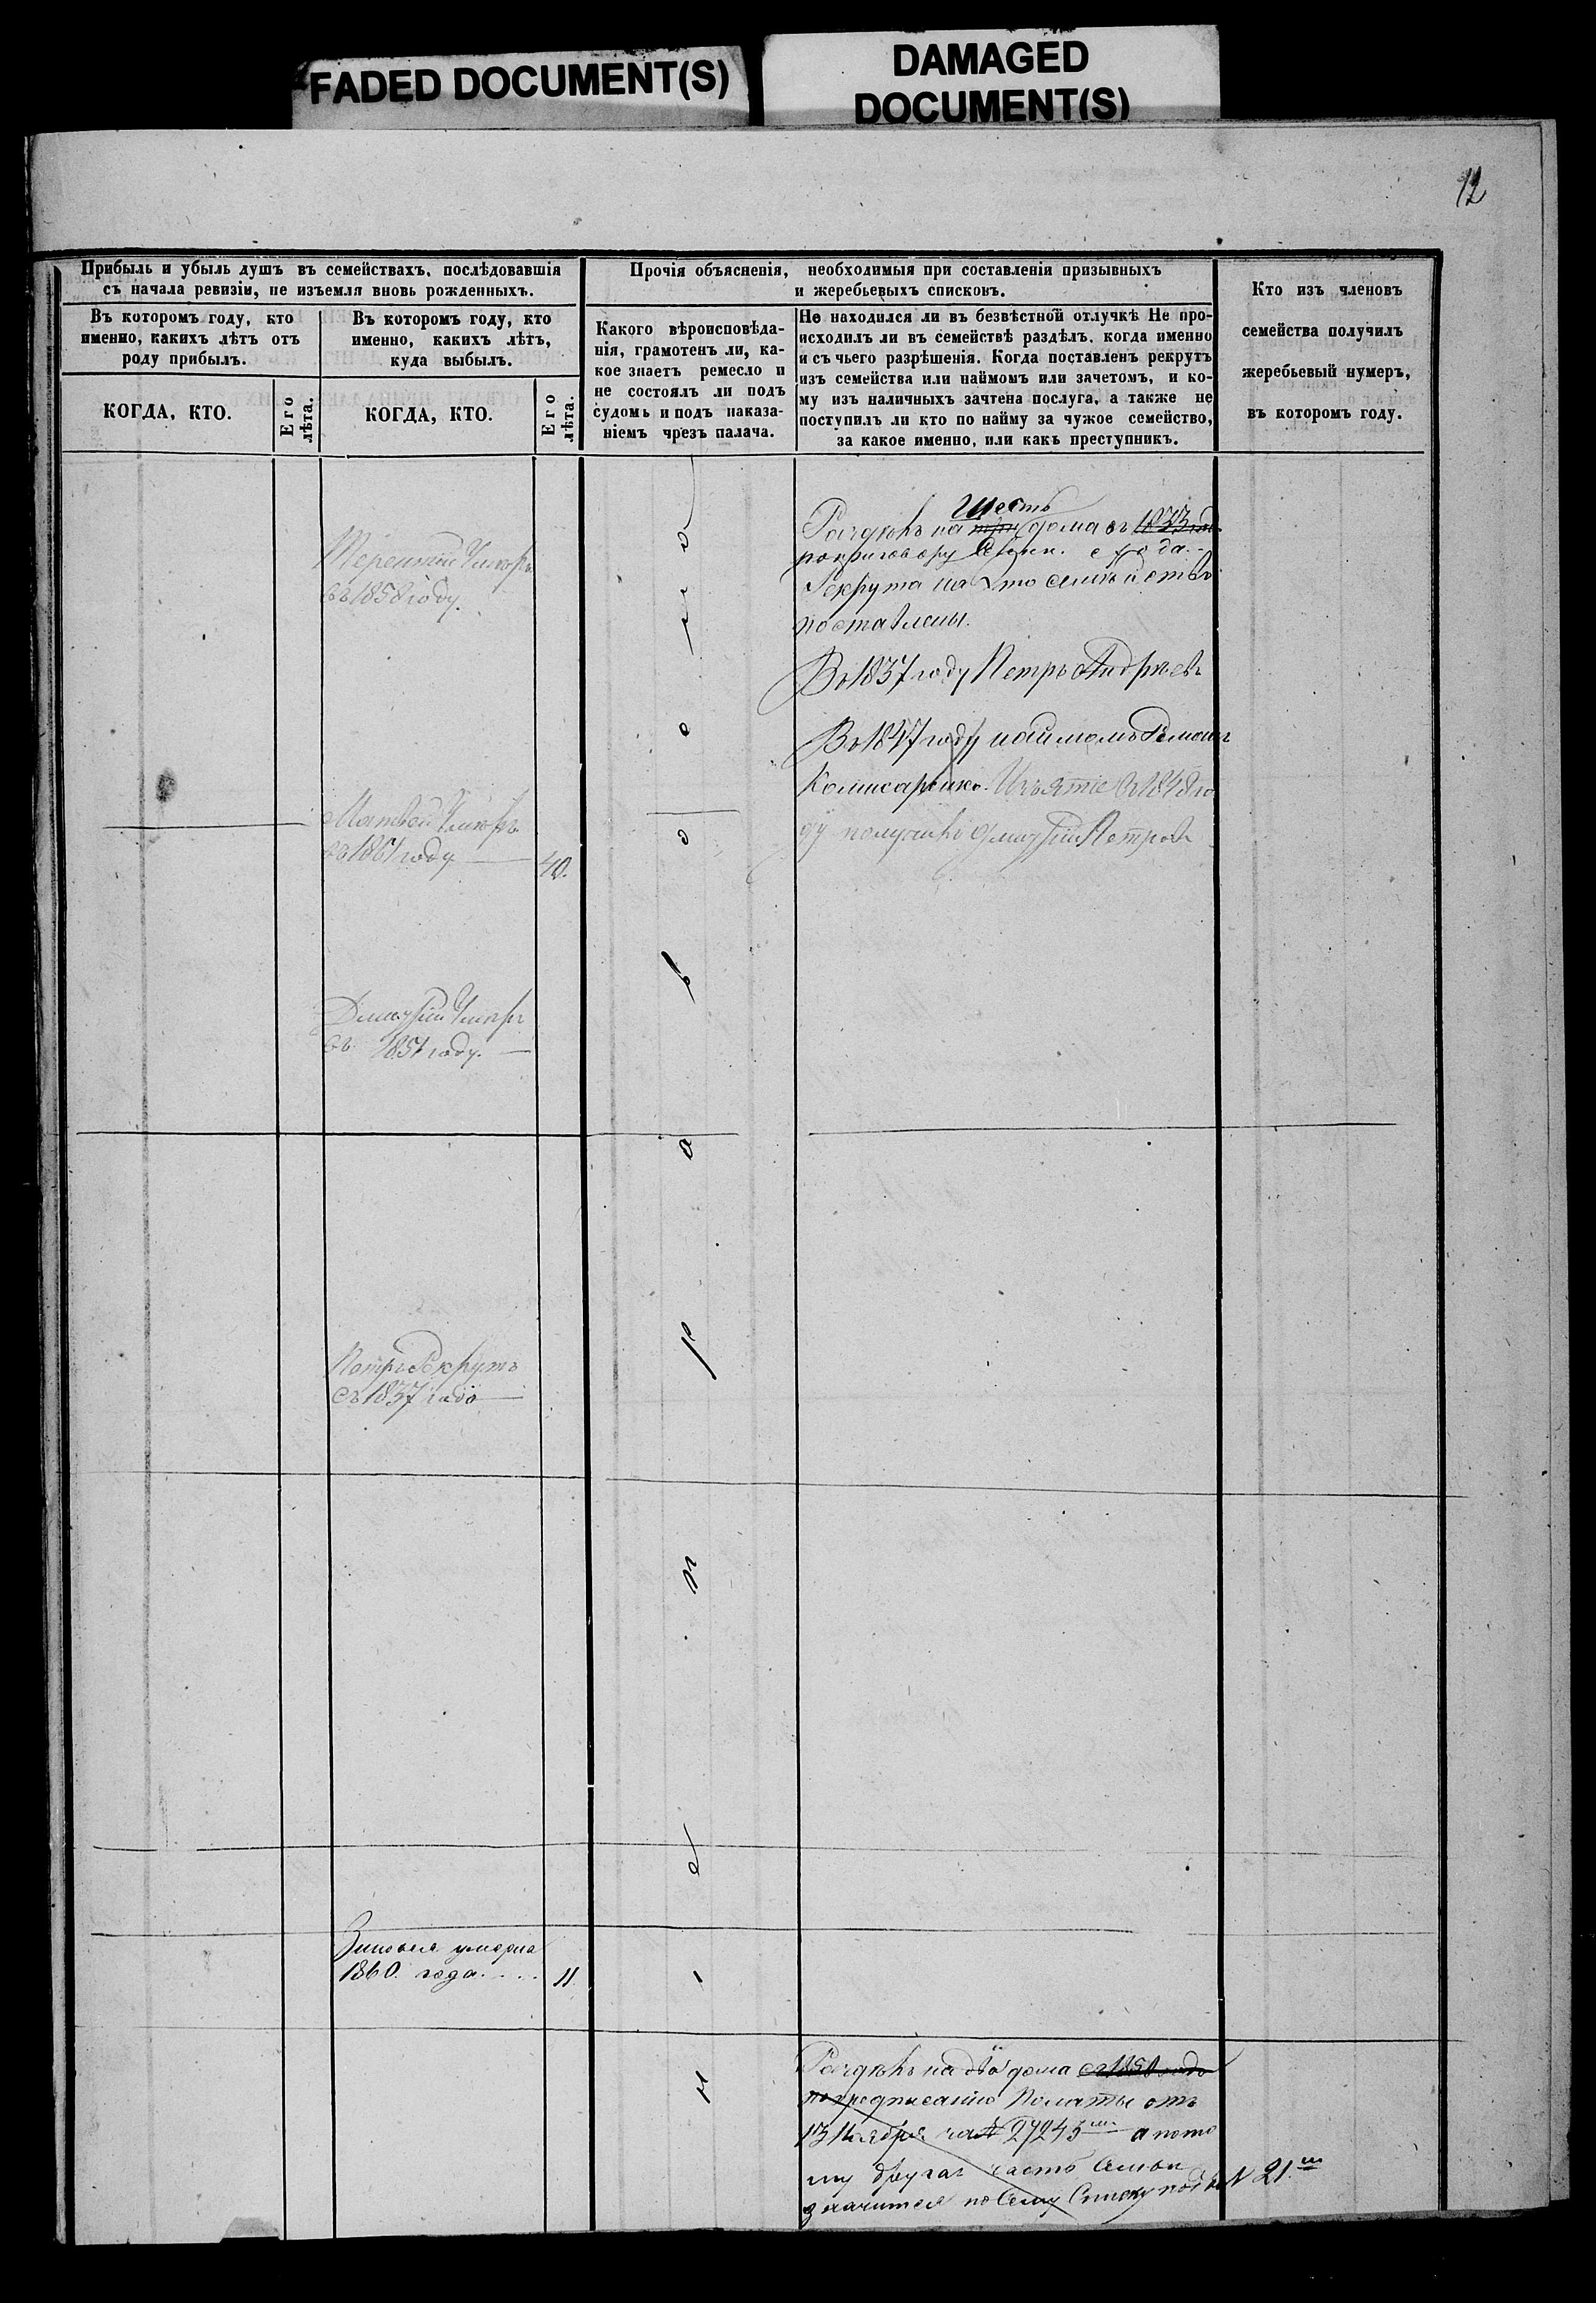 FADED DOCUMENT(S)
DAMAGED
DOCUMENT(S)
12
Прибыль и убыль душъ въ семействахъ, послѣдовавшія
съ начала ревизіи, не изъемля вновь рожденныхъ.
Въ которомъ году, кто
именно, какихъ лѣтъ отъ
роду прибылъ.
Въ которомъ году, кто
именно, какихъ лѣтъ,
куда выбылъ.
КОГДА, КТО.
Его
лѣта.
КОГДА, КТО.
Его
лѣта.
Прочія объясненія, необходимыя при составленіи призывныхъ
и жеребьевыхъ списковъ.
Какого вѣроисповѣда-
нія, грамотенъ ли, ка-
кое знаетъ ремесло и
не состоялъ ли подъ
судомъ и подъ наказа-
ніемъ чрезъ палача.
Не находился ли въ безвѣстной отлучкѣ Не про-
исходилъ ли въ семействѣ раздѣлъ, когда именно
и съ чьего разрѣшенія. Когда поставленъ рекрутъ
изъ семейства или наймомъ или зачетомъ, и ко-
му изъ наличныхъ зачтена послуга, а также не
поступилъ ли кто по найму за чужое семейство,
за какое именно, или какъ преступникъ.
Кто изъ членовъ
семейства получилъ
жеребьевый нумеръ,
въ которомъ году.
Терентій умеръ
въ 1858 году.
Матвѣй умеръ
въ 1861 году 40.
Дмитрій умеръ
въ 1857 году.
Петръ Рекрутъ
съ 1837 года
Зиновья умерла
1860. года. 11.
Шесть
Раздѣлъ на три дома съ 1833
по приговору
Рекрута на это семѣйство
поставлены.
Въ 1837 году Петръ Андрѣевъ
Въ 1847 году наймомъ Романъ
Комисаренко. Изъятіе въ 1848 го
ду получилъ Дмитрій Петровъ
Раздѣлъ на два дома съ 1850 года
по предписанію Палаты отъ
13 Ноября за № 27245 а пото
му другая часть семьи
значится по сему Списку подъ № 21.